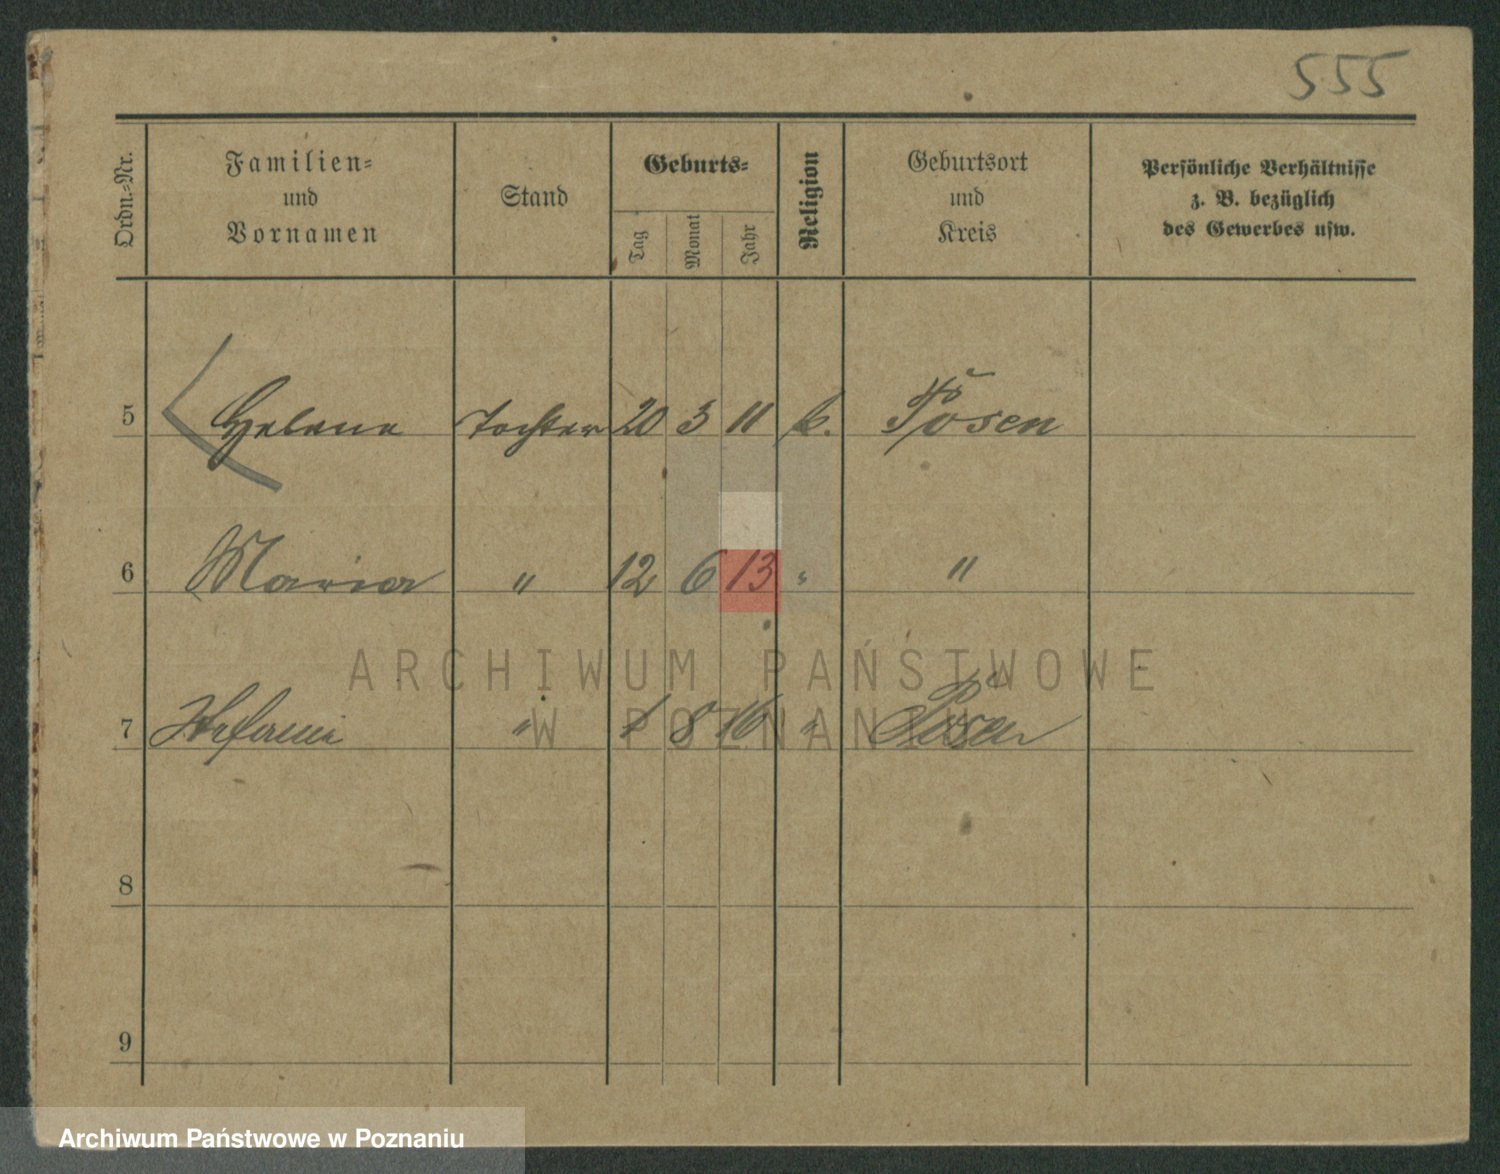 555
Ordn.-Nr.
Familien-
und
Vornamen
Stand
Geburts-
Tag
Monat
Jahr
Religion
Geburtsort
und
Kreis
Persönliche Verhältnisse
z. B. bezüglich
des Gewerbes usw.
5 Helene Tochter 20 3 11 k. Posen
6 Maria " 12 6 13 " "
ARCHIWUM PAŃSTWOWE
W POZNANIU
7 Stefanie " 1 8 16 " Posen
8
9
Archiwum Państwowe w Poznaniu